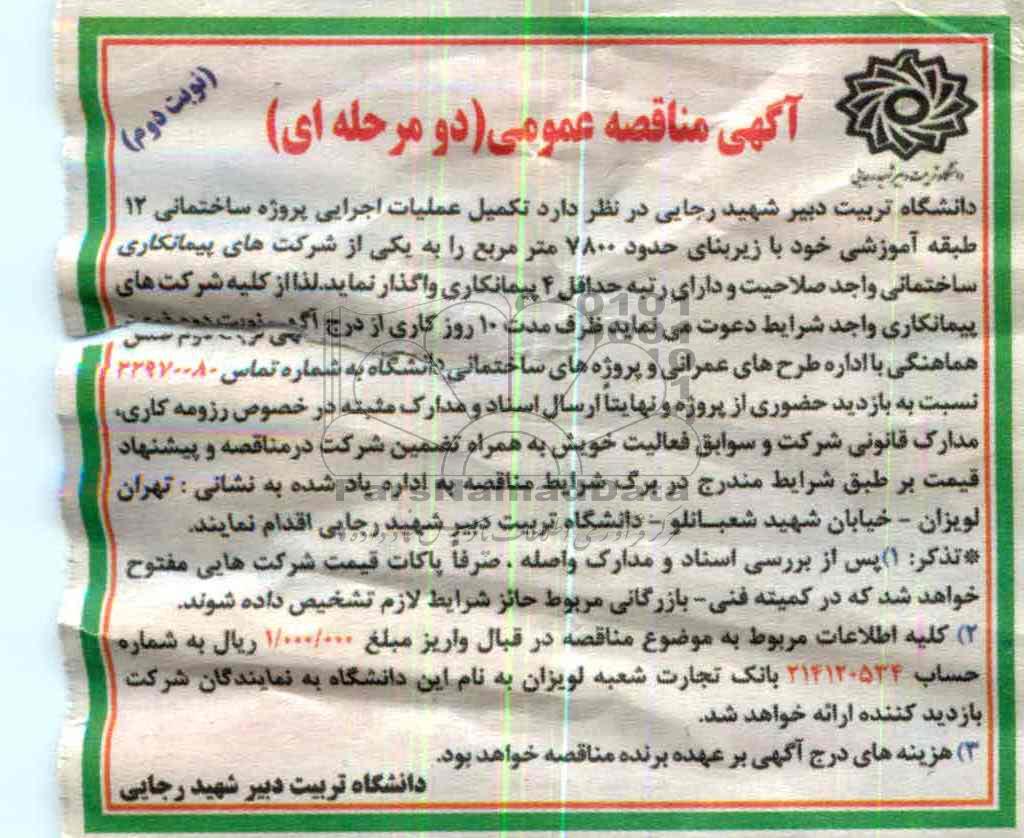 (نوبت دوم)
آگهی مناقصه عمومی(دو مرحله ای)
دانشگاه تربیت دبیر شهید رجایی
دانشگاه تربیت دبیر شهید رجایی در نظر دارد تکمیل عملیات اجرایی پروژه ساختمانی ۱۲
طبقه آموزشی خود با زیربنای حدود ۷۸۰۰ متر مربع را به یکی از شرکت های پیمانکاری
ساختمانی واجد صلاحیت و دارای رتبه حداقل ۴ پیمانکاری واگذار نماید.لذا از کلیه شرکت های
پیمانکاری واجد شرایط دعوت می نماید ظرف مدت ۱۰ روز کاری از درج آگهی نوبت دوم ضمن
هماهنگی با اداره طرح های عمرانی و پروژه های ساختمانی دانشگاه به شماره تماس ۲۲۹۷۰۰۸۰
نسبت به بازدید حضوری از پروژه و نهایتاً ارسال اسناد و مدارک مثبته در خصوص رزومه کاری،
مدارک قانونی شرکت و سوابق فعالیت خویش به همراه تضمین شرکت درمناقصه و پیشنهاد
قیمت بر طبق شرایط مندرج در برگ شرایط مناقصه به اداره یاد شده به نشانی : تهران
لویزان - خیابان شهید شعبانلو - دانشگاه تربیت دبیر شهید رجایی اقدام نمایند.
*تذکر: ۱)پس از بررسی اسناد و مدارک واصله ، صرفاً پاکات قیمت شرکت هایی مفتوح
خواهد شد که در کمیته فنی- بازرگانی مربوط حائز شرایط لازم تشخیص داده شوند.
۲) کلیه اطلاعات مربوط به موضوع مناقصه در قبال واریز مبلغ ۱/۰۰۰/۰۰۰ ریال به شماره
حساب ۲۱۴۱۲۰۵۳۴ بانک تجارت شعبه لویزان به نام این دانشگاه به نمایندگان شرکت
بازدید کننده ارائه خواهد شد.
۳) هزینه های درج آگهی بر عهده برنده مناقصه خواهد بود.
دانشگاه تربیت دبیر شهید رجایی
ParsNamadData